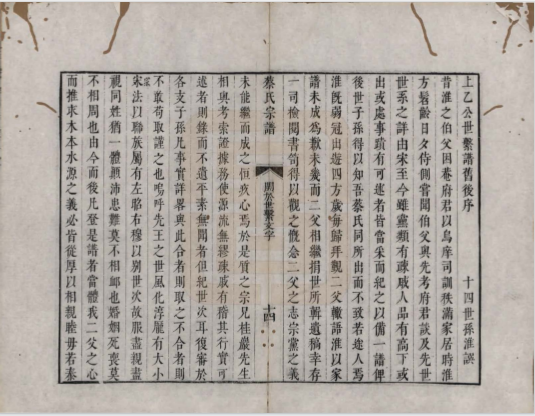 上乙公世繫譜舊後序　十四世孫淮誤
昔淮之伯父因菴府君以烏摩司訓秩滿家居時淮
方髫齡日夕侍側嘗聞伯父與先考府君談及先世
世系之詳由宋至今雖黨類有疎戚人品有高下或
出或處事蹟有可述者皆當采而紀之以備一譜俾
後世子孫得以知吾蔡氏同所出而不致若途人焉
淮既弱冠出遊四方歲每歸拜觀二父輙語淮以家
譜未成為歉未幾而二父相繼捐世所輯遺稿幸存
一司檢閱書笥得以觀之慨念二父之志宗黨之義
蔡氏宗譜
關於世繫文字
十四
未能繼而成之恒疚心焉於是質之宗兄桂巖先生
相與考索證據務使源流無繆疎戚有稽其行實可
述者則錄而不遺平素無聞者但紀世次耳復審於
各支子孫凡事實詳畧與此合者則取之不合者則
不敢苟取謹之也嗚呼先王之世風化淳厖有大小
宗法以聯族屬有左昭右穆以別世次故服盡親盡
視同姓猶一體顛沛患難莫不相卹也婚姻死喪莫
不相周也由今而後凡登是譜者當體我二父之心
而推求木本水源之義必皆從厚以相親睦毋若秦